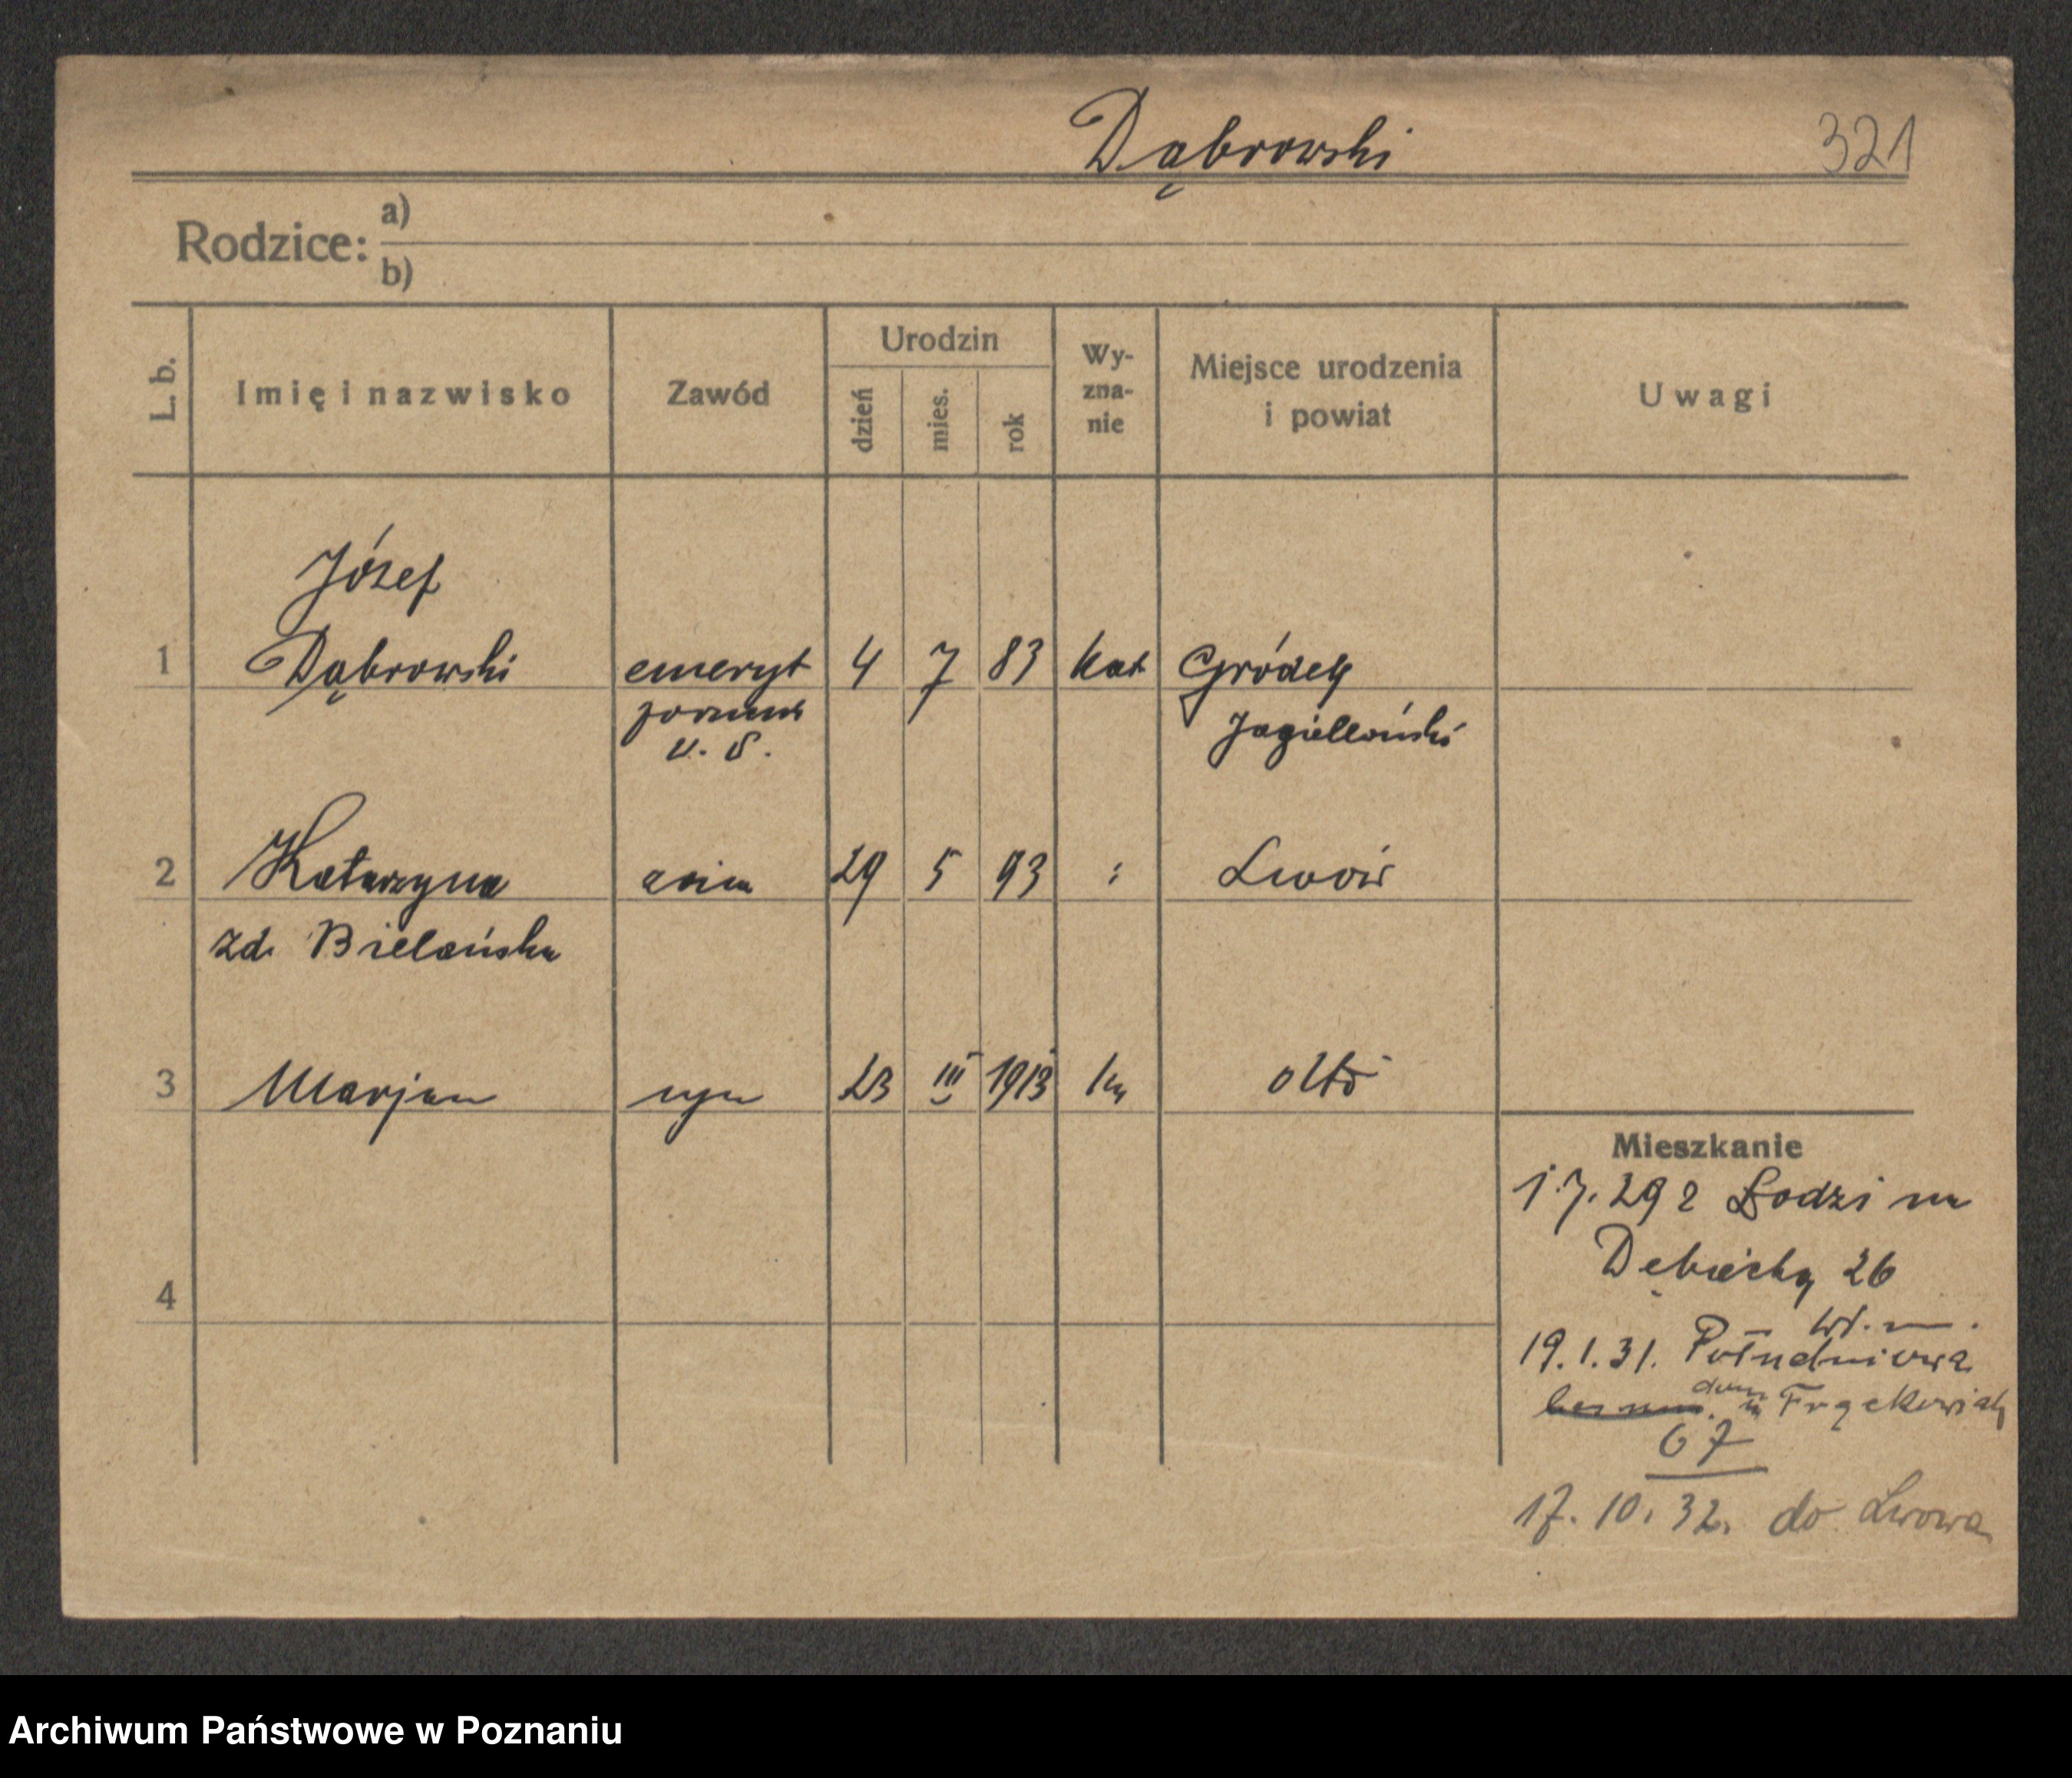 Dąbrowski 321
Rodzice: a)
b)
L. b. Imię i nazwisko Zawód Urodzin dzień mies. rok Wy-zna-nie Miejsce urodzenia i powiat Uwagi
Józef
1 Dąbrowski emeryt 4 7 83 kat Gródek
Jagielloński
2 Katarzyna 29 5 93 Lwów
zd. Bielańska
3 Marjan syn 23 III 1913
Mieszkanie
1.7.29 z Łodzi na
4 Dębiecką 26
19.1.31. Południowa
dom Frąckowiak
67
17.10.32. do Lwowa
Archiwum Państwowe w Poznaniu